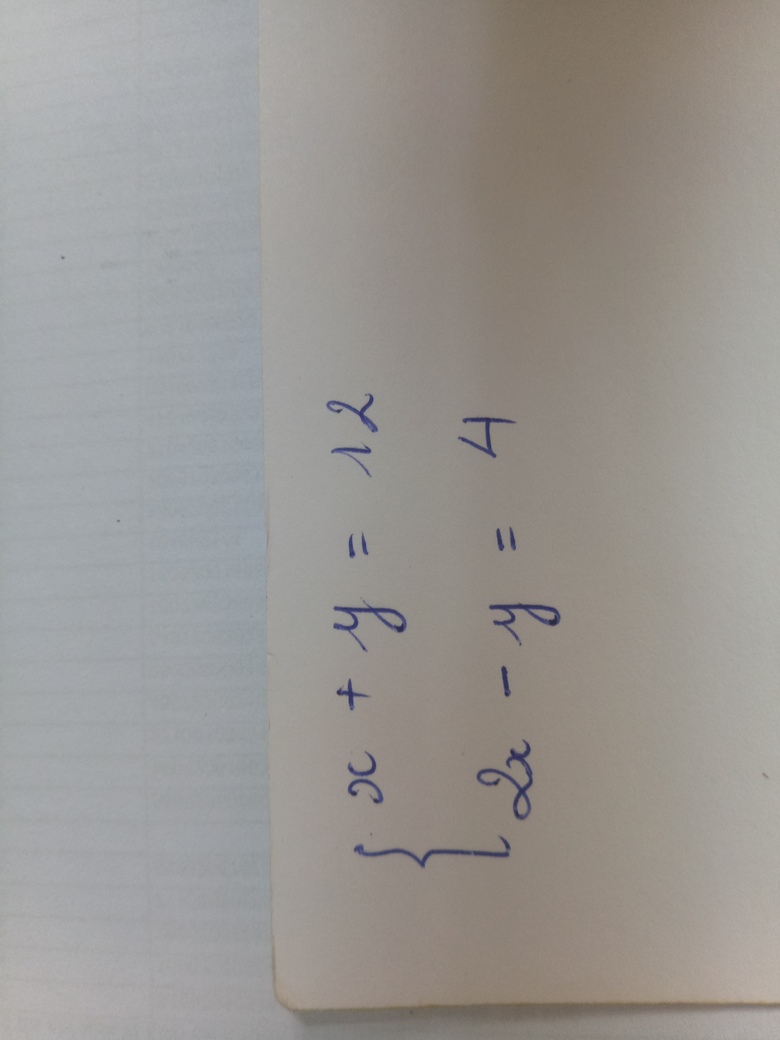 x + y = 12
2x - y = 4